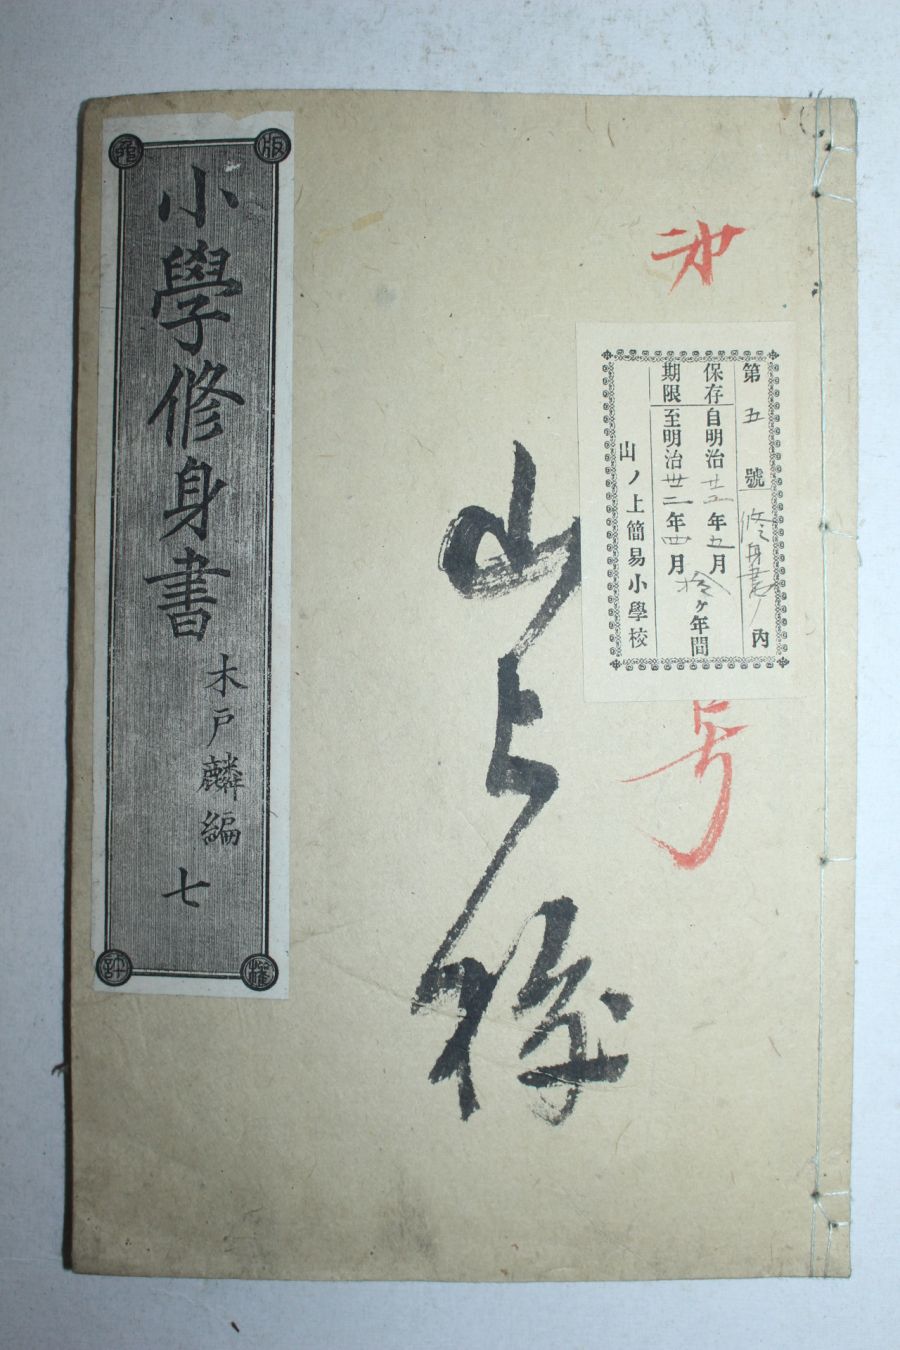 第五號修身書内
保存自明治廿二年五月
期限至明治卅二年四月
拾ケ年間
山ノ上簡易小學校
号
山上校
版權
免許
小學修身書
木戸麟編
七